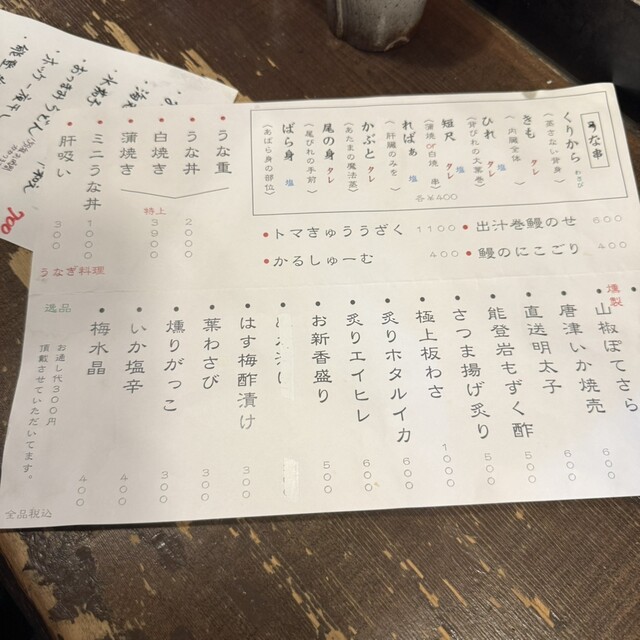 うな串
くりから わさび
(蒸さない背身)
きも タレ
(内臓全体)
ひれ タレ 塩
(背びれの大葉巻)
短尺 タレ 塩
(蒲焼 or 白焼 串)
ればぁ 塩
(肝臓のみを)
かぶと タレ
(あたまの魔法蒸)
尾の身 タレ
(尾びれの手前)
ばら身 塩
(あばら身の部位)
各¥400
・出汁巻鰻のせ 600
・鰻のにこごり 400
・トマきゅううざく 1100
・かるしゅーむ 400
・うな重
・うな丼
・白焼き
・蒲焼き
2000
特上 3900
・ミニうな丼 1000
・肝吸い 300
うなぎ料理
燻製
・山椒ぽてさら 600
・唐津いか焼売 600
・直送明太子 500
・能登岩もずく酢 500
・さつま揚げ炙り 500
・極上板わさ 1000
・炙りホタルイカ 600
・炙りエイヒレ 600
・お新香盛り 500
・はす梅酢漬け 300
・葉わさび 300
・燻りがっこ 300
・いか塩辛 400
・梅水晶 400
逸品
お通し代300円
頂戴させていただいてます。
全品税込
700